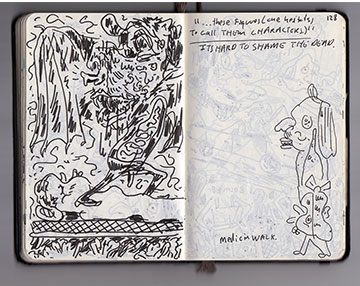 "...these figures (one hesitates
128
to call THEM CHARACTERS)"
ITS HARD TO SHAME THE DEAD.
Medicin WALK.